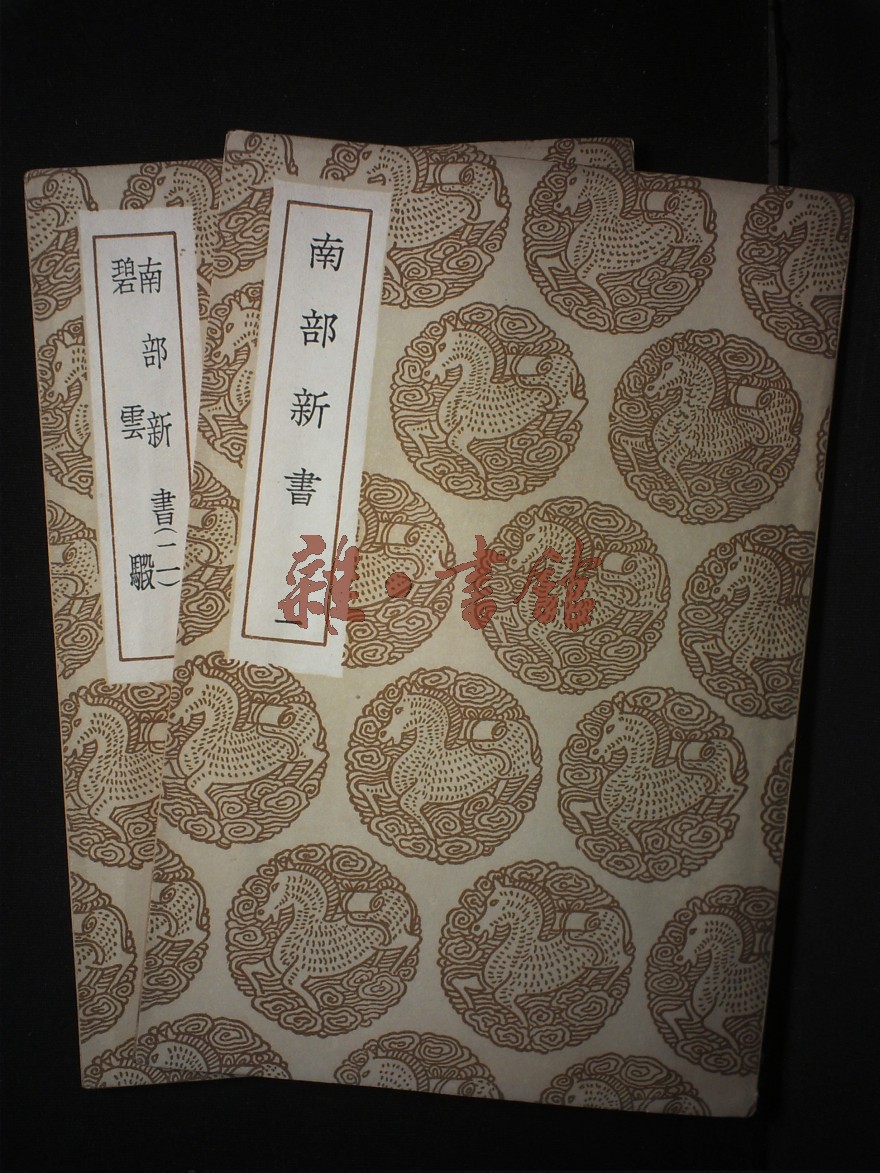 南部新書 一
南部新書(二)
碧雲騢
雜·書館